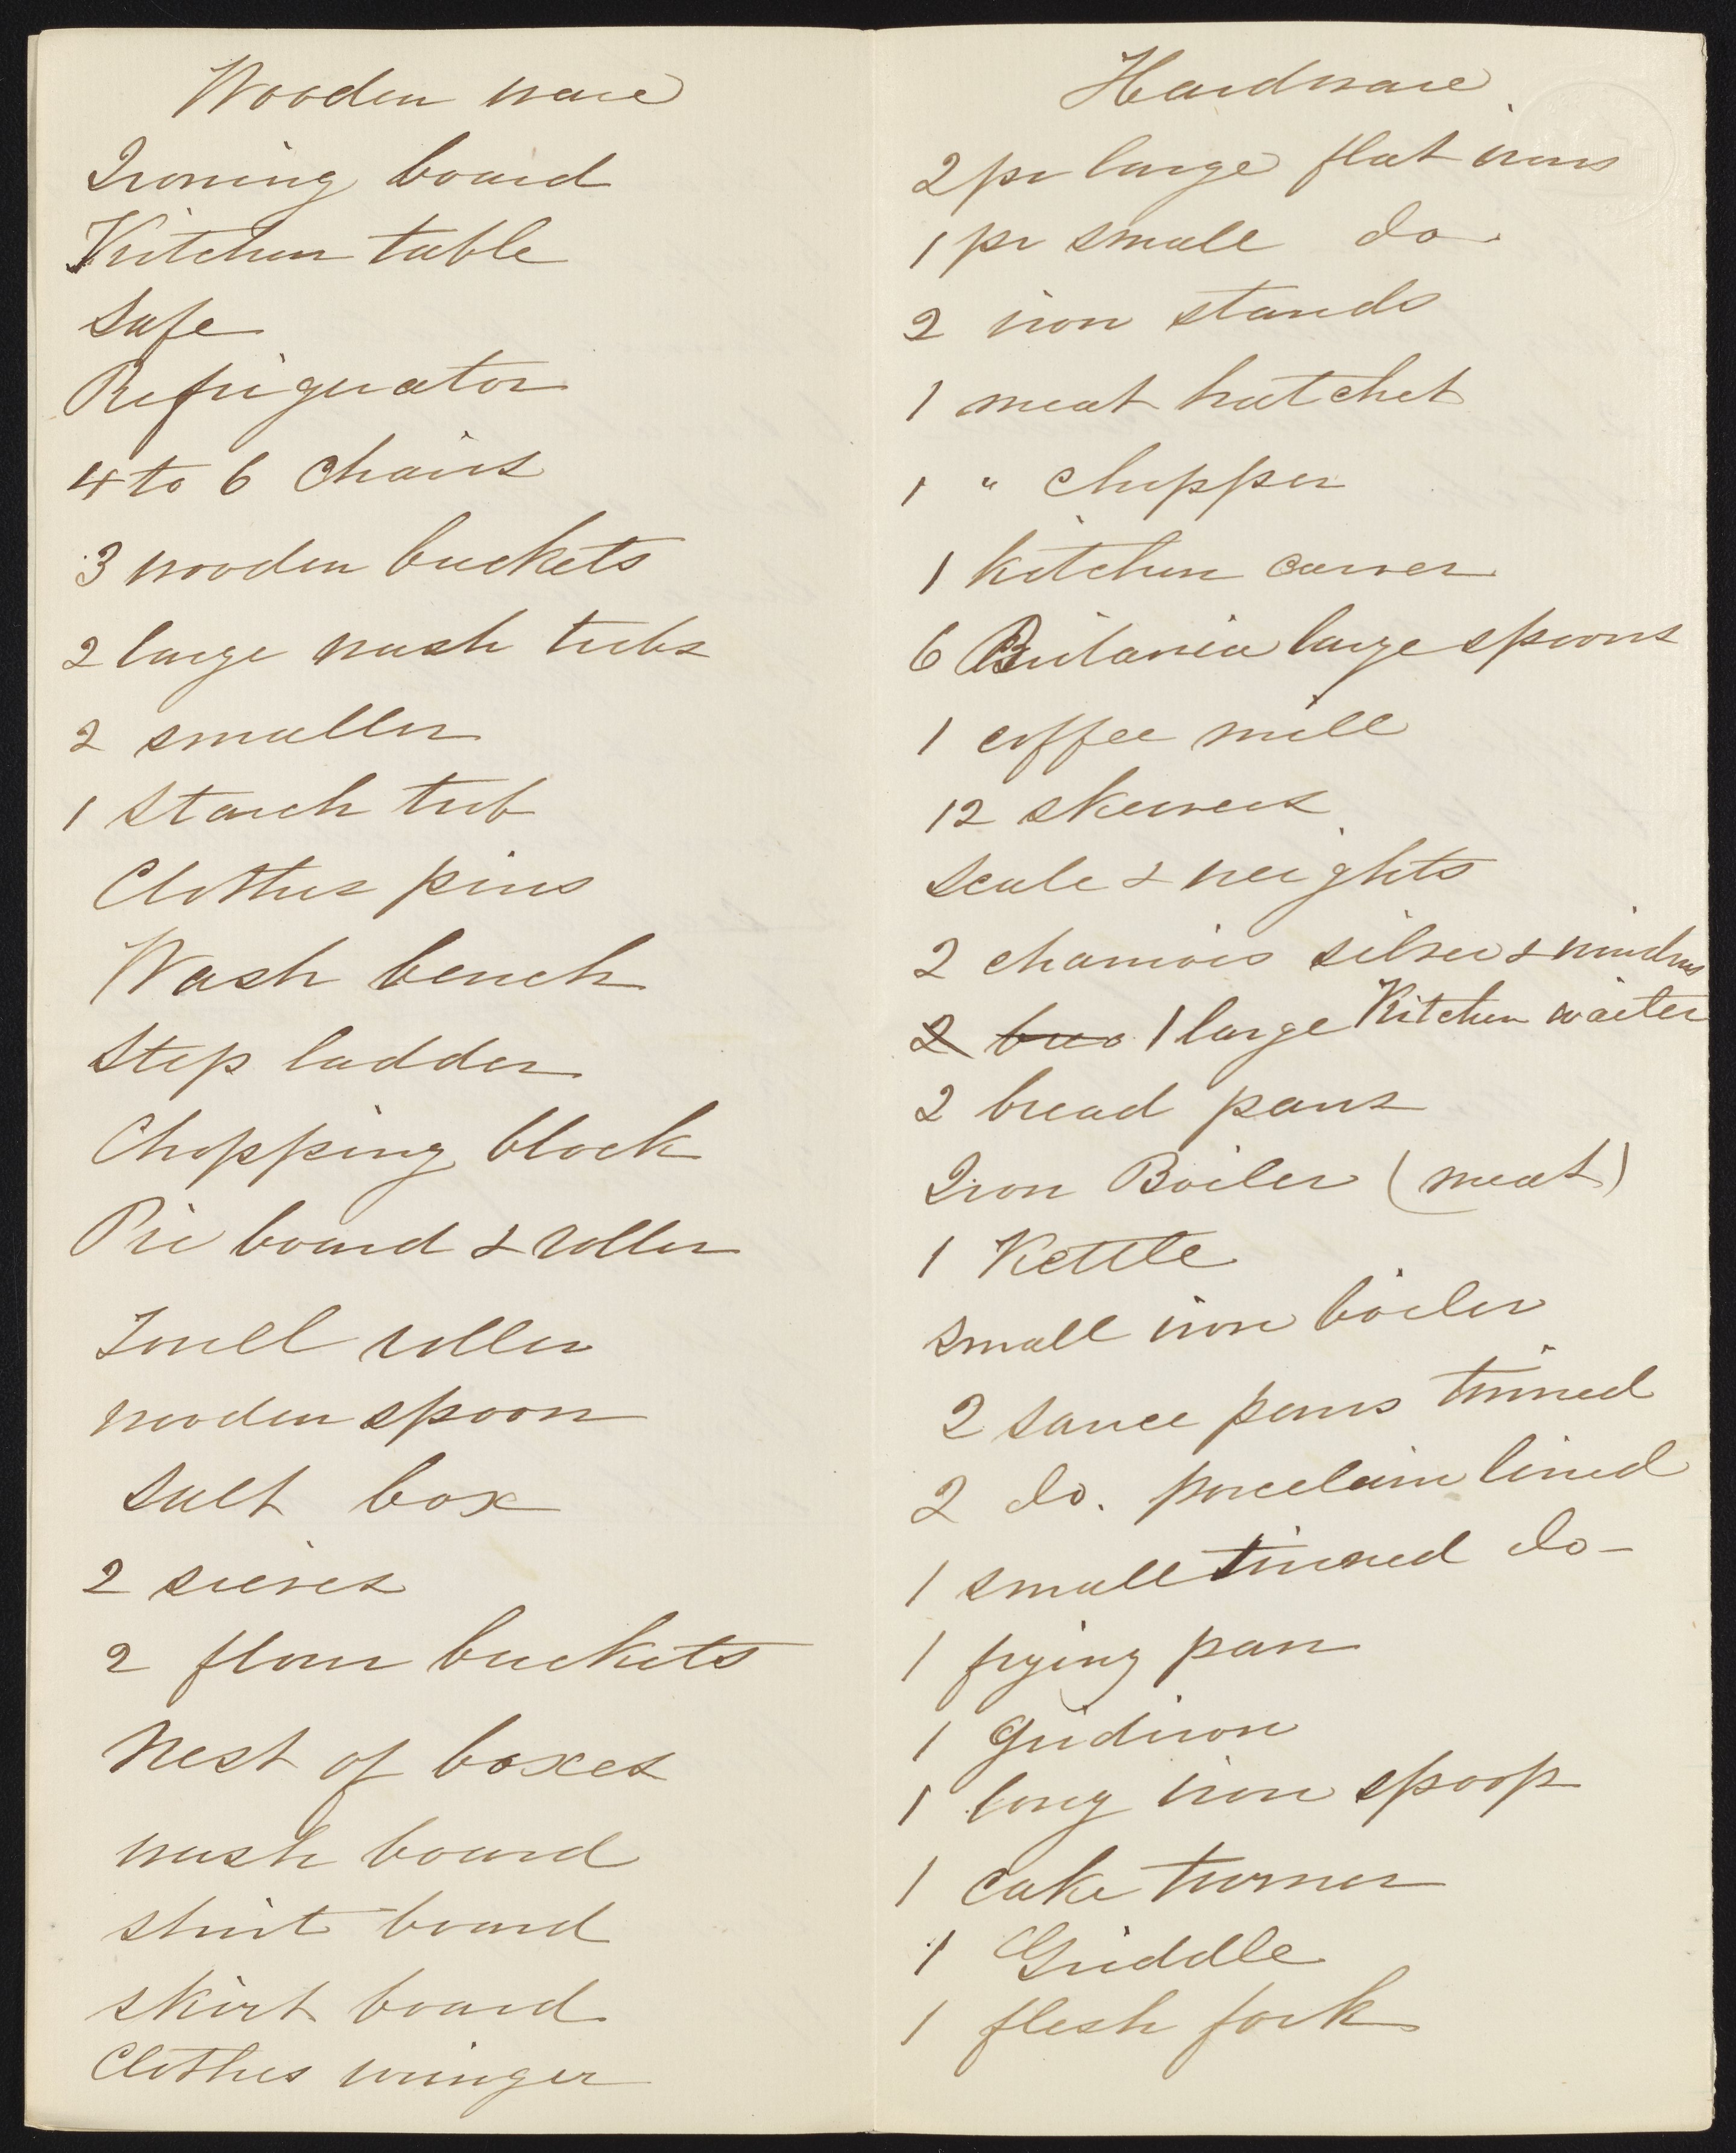 Wooden ware
Ironing board
Kitchen table
Safe
Refrigerator
4 to 6 Chairs
3 wooden buckets
2 large wash tubs
2 smaller
1 Starch tub
Clothes pins
Wash bench
Step ladder
Chopping block
Pie board & roller
Towell roller
wooden spoon
Salt box
2 sieves
2 flour buckets
Nest of boxes
wash board
shirt board
skirt board
Clothes wringer
Hardware
2 pr large flat irons
1 pr small do
2 iron stands
1 meat hatchet
1 " chopper
1 kitchen carver
6 Britania large spoons
1 coffee mill
12 skewers
Scale & weights
2 chamois silver & windows
2 1 large Kitchen waiter
2 bread pans
Iron Boiler (meat)
1 Kettle
Small iron boiler
2 sauce pans tinned
2 do. porcelain lined
1 small tinned do -
1 frying pan
1 Gridiron
1 long iron spoop
1 cake turner
1 Griddle
1 flesh fork